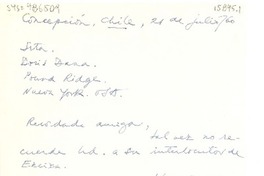 Concepción, Chile, 21 de julio/60
Srta.
Doris Dana
Pound Ridge
Nueva York. USA.
Recordada amiga,
tal vez no re-
cuerde Ud. a su interlocutor de